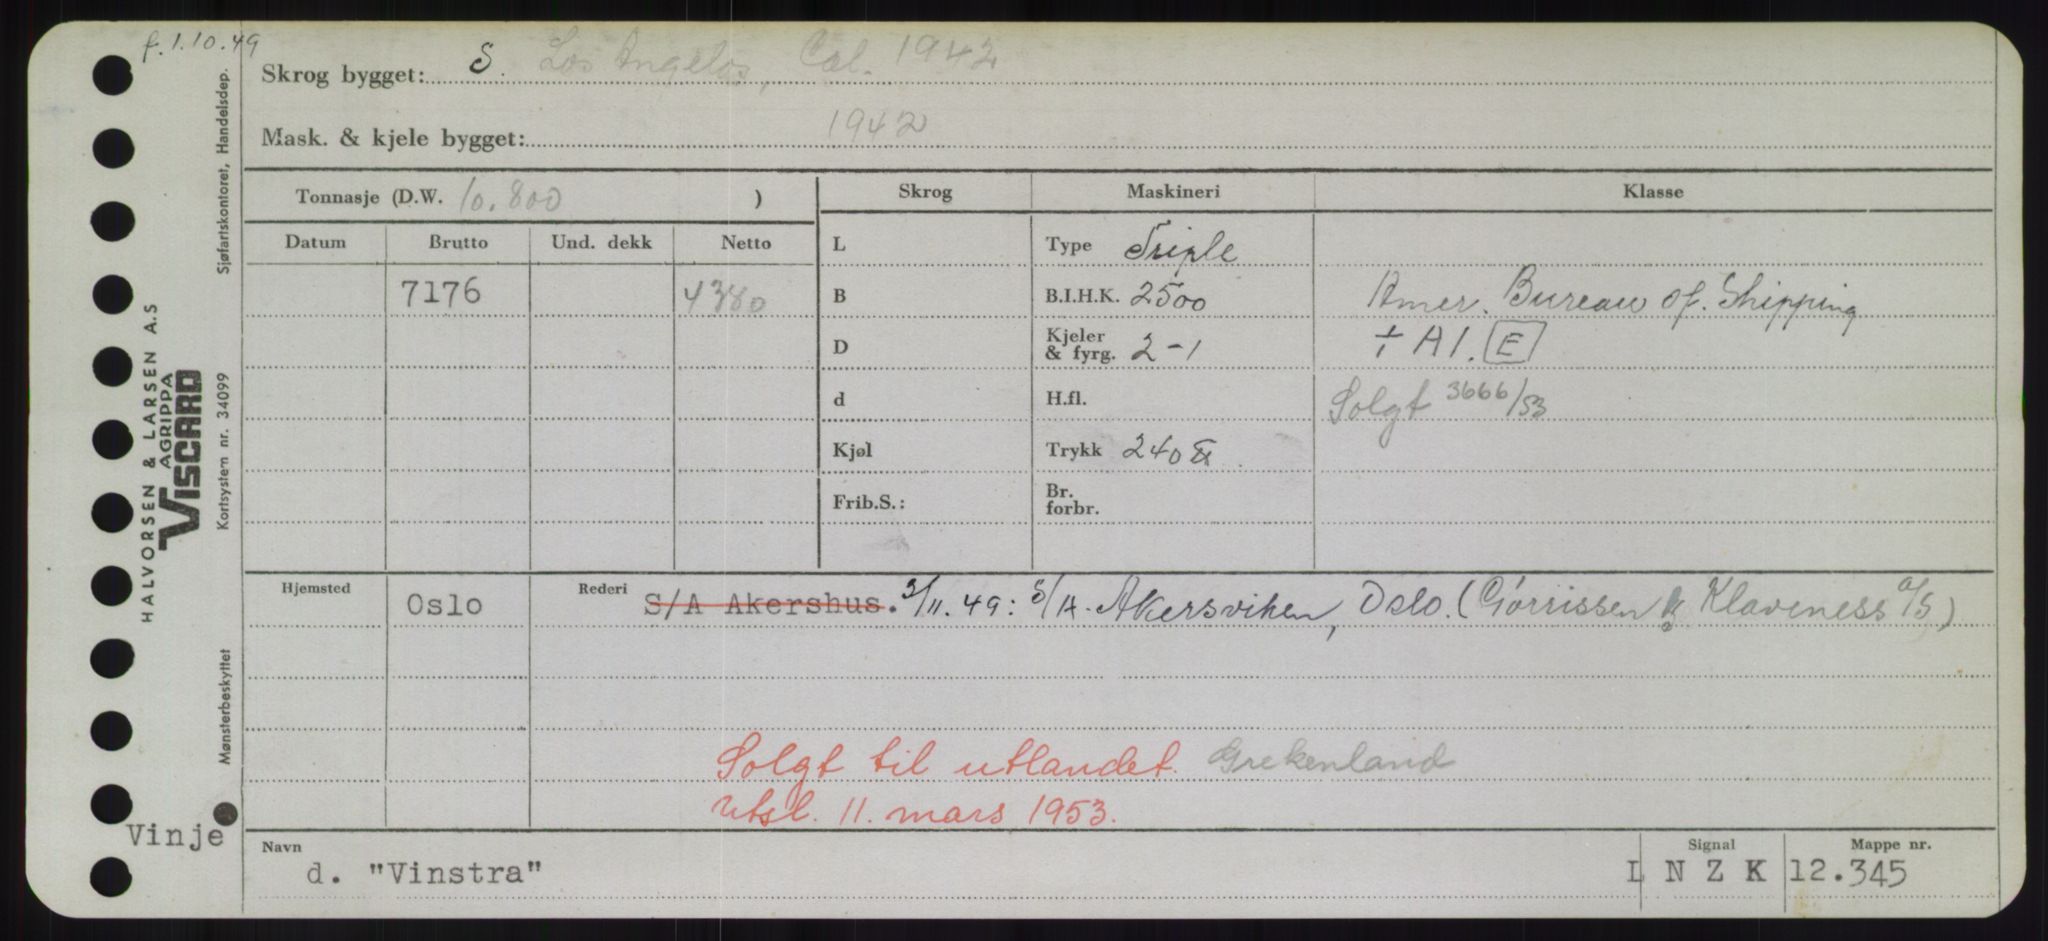 f. 1.10.49
Skrog bygget: S. Los Angelos, Cal. 1942
Mask. & kjele bygget: 1942
Tonnasje (D.W. 10.800 )
Skrog Maskineri Klasse
Datum Brutto Und. dekk Netto
L Type Triple
7176 4380
B B.I.H.K. 2500 Amer. Bureau of. Shipping
D Kjeler & fyrg. 2-1 + A1. E
d H.fl. Solgt 3666/53
Kjøl Trykk 240
Frib.S.: Br. forbr.
Hjemsted Oslo Rederi S/A Akershus. 3/11.49: S/A. Akersviken, Oslo. (Gørrissen & Klaveness A/S)
Solgt til utlandet. Grekenland
Utsl. 11. mars 1953.
Vinje
Navn d. "Vinstra"
Signal L N Z K
Mappe nr. 12.345
HALVORSEN & LARSEN A.S
AGRIPPA
VISCARD
Sjøfartskontoret, Handelsdep.
Kortsystem nr. 34099
Mønsterbeskyttet